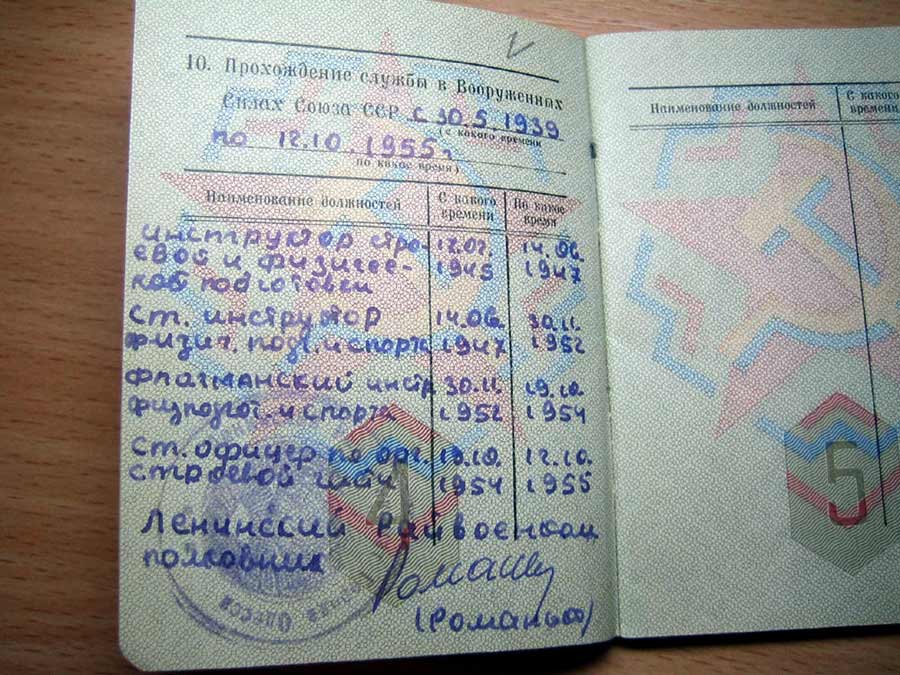 10. Прохождение службы в Вооруженных
Силах Союза ССР с 30.5.1939
(с какого времени
по 12.10.1955г
по какое время)
Наименование должностей С какого времени По какое время
инструктор стро- 12.07. 14.06.
евой и физичес- 1945 1947
кой подготовки
Ст. инструктор 14.06. 30.11.
физич. подг. и спорта 1947 1952
Флагманский инстр 30.11. 19.10.
физподгот. и спорта 1952 1954
Ст. офицер по орг. 19.10. 12.10.
строевой части 1954 1955
Ленинский Райвоенком
полковник
(Романов)
4
Одессы
Наименование должностей С какого времени
5